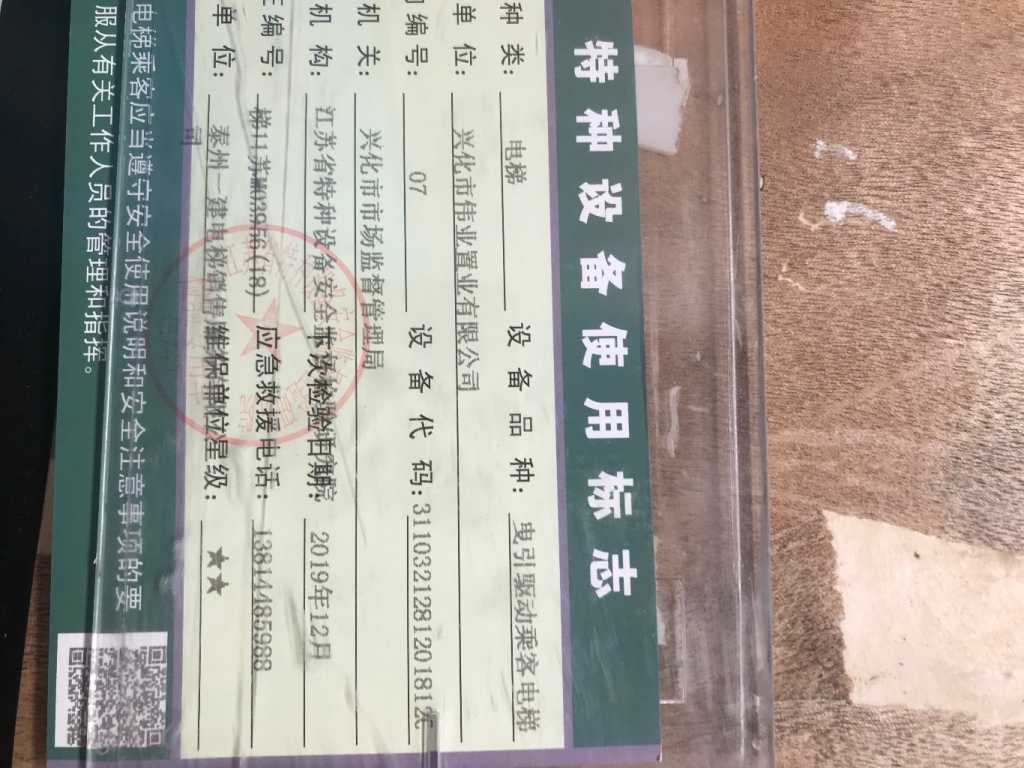 特种设备使用标志
种类: 电梯 设备品种: 曳引驱动乘客电梯
单位: 兴化市伟业置业有限公司
编号: 07 设备代码: 311032128120181
机关: 兴化市市场监督管理局
机构: 江苏省特种设备安全 下次检验日期: 2019年12月
编号: 梯11苏 (18) 应急救援电话: 13814485988
单位: 泰州一建电梯销售 维保单位星级: ★★
司
电梯乘客应当遵守安全使用说明和安全注意事项的要
服从有关工作人员的管理和指挥。